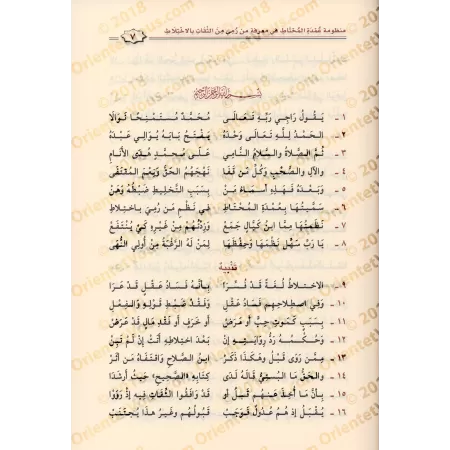 منظومة عُمْدَةِ المُحْتَاطِ في معرفة من رُمِيَ مِنَ الثِّقَاتِ بِالاخْتِلَاطِ
٧
١ - يَقُولُ رَاجِي رَبِّهِ تَعَالَى مُحَمَّدٌ مُسْتَمْنِحًا نَوَالَا
٢ - الحَمْدُ لِلَّهِ تَعَالَى وَحْدَهُ يَفْتَحُ بَابَهُ يُوَالِي عَبْدَهُ
٣ - ثُمَّ الصَّلَاةُ وَالسَّلَامُ النَّامِي عَلَى مُحَمَّدٍ هُدَى الأَنَامِ
٤ - والآلِ والصَّحْبِ وَكُلِّ مَنْ قَفَا نَهْجَهُمُ الحَقَّ وَنِعْمَ المُقْتَفَى
٥ - وَبَعْدَهُ فَهَذِهِ أَسْمَاءُ مَنْ بِسَبَبِ التَّخْلِيطِ ضَبْطُهُ وَهَنْ
٦ - سَمَّيْتُهَا بِعُمْدَةِ المُحْتَاطِ فِي نَظْمِ مَنْ رُمِيَ بِاخْتِلَاطِ
٧ - نَظَمْتُهَا مِمَّا ابنُ كَيَّالٍ جَمَعْ وَزِدْتُهُمْ مِنْ غَيْرِهِ كَيْ يُنْتَفَعْ
٨ - يَا رَبِّ سَهِّلْ نَظْمَهَا وَحِفْظَهَا لِمَنْ لَهُ الرَّغْبَةُ مِنْ أُولِي النُّهَى
تَنْبِيهٌ
٩ - الاخْتِلَاطُ لُغَةً قَدْ فُسِّرَا بِأَنَّهُ فَسَادُ عَقْلٍ قَدْ عَرَا
١٠ - وَفِي اصْطِلَاحِهِمْ فَسَادُ عَقْلِ وَفَقْدُ ضَبْطِ قَوْلِهِ وَالفِعْلِ
١١ - بِسَبَبٍ كَمَوْتِ حِبٍّ أَوْ عَرَضْ أَوْ خَرَفٍ أَوْ فَقْدِ مَالٍ قَدْ عَرَضْ
١٢ - وَحُكْمُهُ رَدُّ رِوَايَتِهِ إِنْ بَعْدَ اخْتِلَاطِهِ أَتَتْ إِنْ لَمْ تَبِنْ
١٣ - مِمَّنْ رَوَى قَبْلُ وَهَكَذَا ذَكَرْ ابنُ الصَّلَاحِ وَاقْتَفَاهُ مَنْ أَثَرْ
١٤ - وَالحَقُّ مَا البُسْتِيُّ قَالَهُ لَدَى كِتَابِهِ «الصَّحِيحِ» حَيْثُ أَرْشَدَا
١٥ - بِأَنَّ مَا أُخِذَ عَنْهُمْ قَبْلُ أَوْ قَدْ وَافَقُوا الثِّقَاتِ فِيهِ إِذْ رَوَوْا
١٦ - يُقْبَلُ إِذْ هُمْ عُدُولٌ فَوَجَبْ قَبُولُهُمْ وَغَيْرُ هَذَا يُجْتَنَبْ